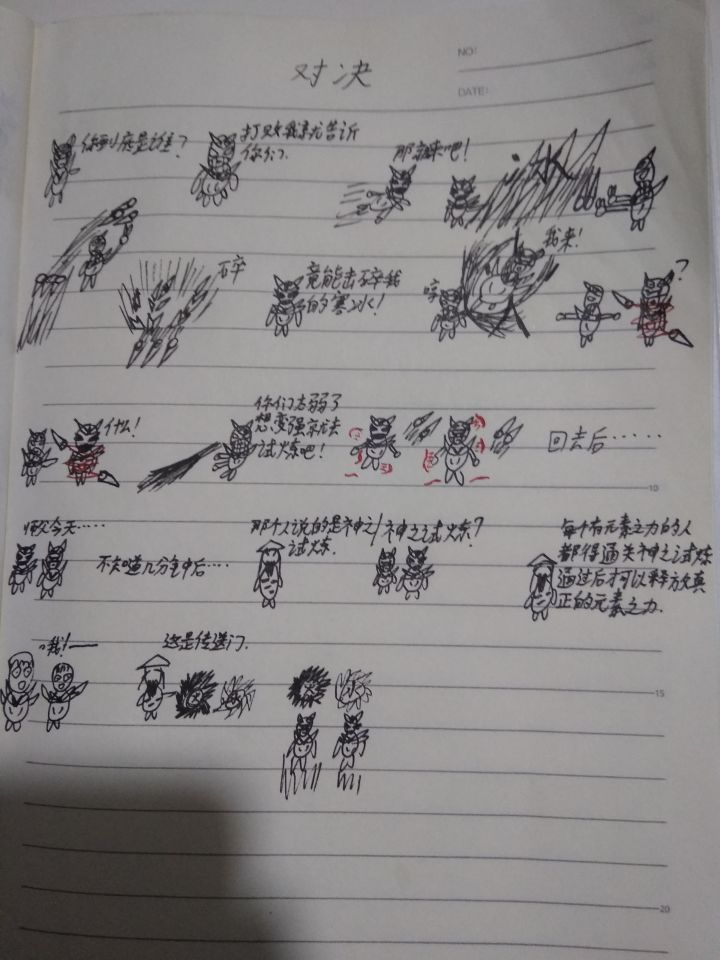 对决
NO:
DATE:
你到底是谁?
打败我就告诉
你们.
那就来吧!
水
碎
竟能击碎我
的寒冰!
我来!
火
?
什么!
你们太弱了
想变强就去
试炼吧!
回去后……
10
师父今天……
不知道几分钟后…
那个人说的是神之
试炼.
神之试炼?
每个有元素之力的人
都得通关神之试炼
通过后才可以释放真
正的元素之力.
哦!——
这是传送门.
15
20